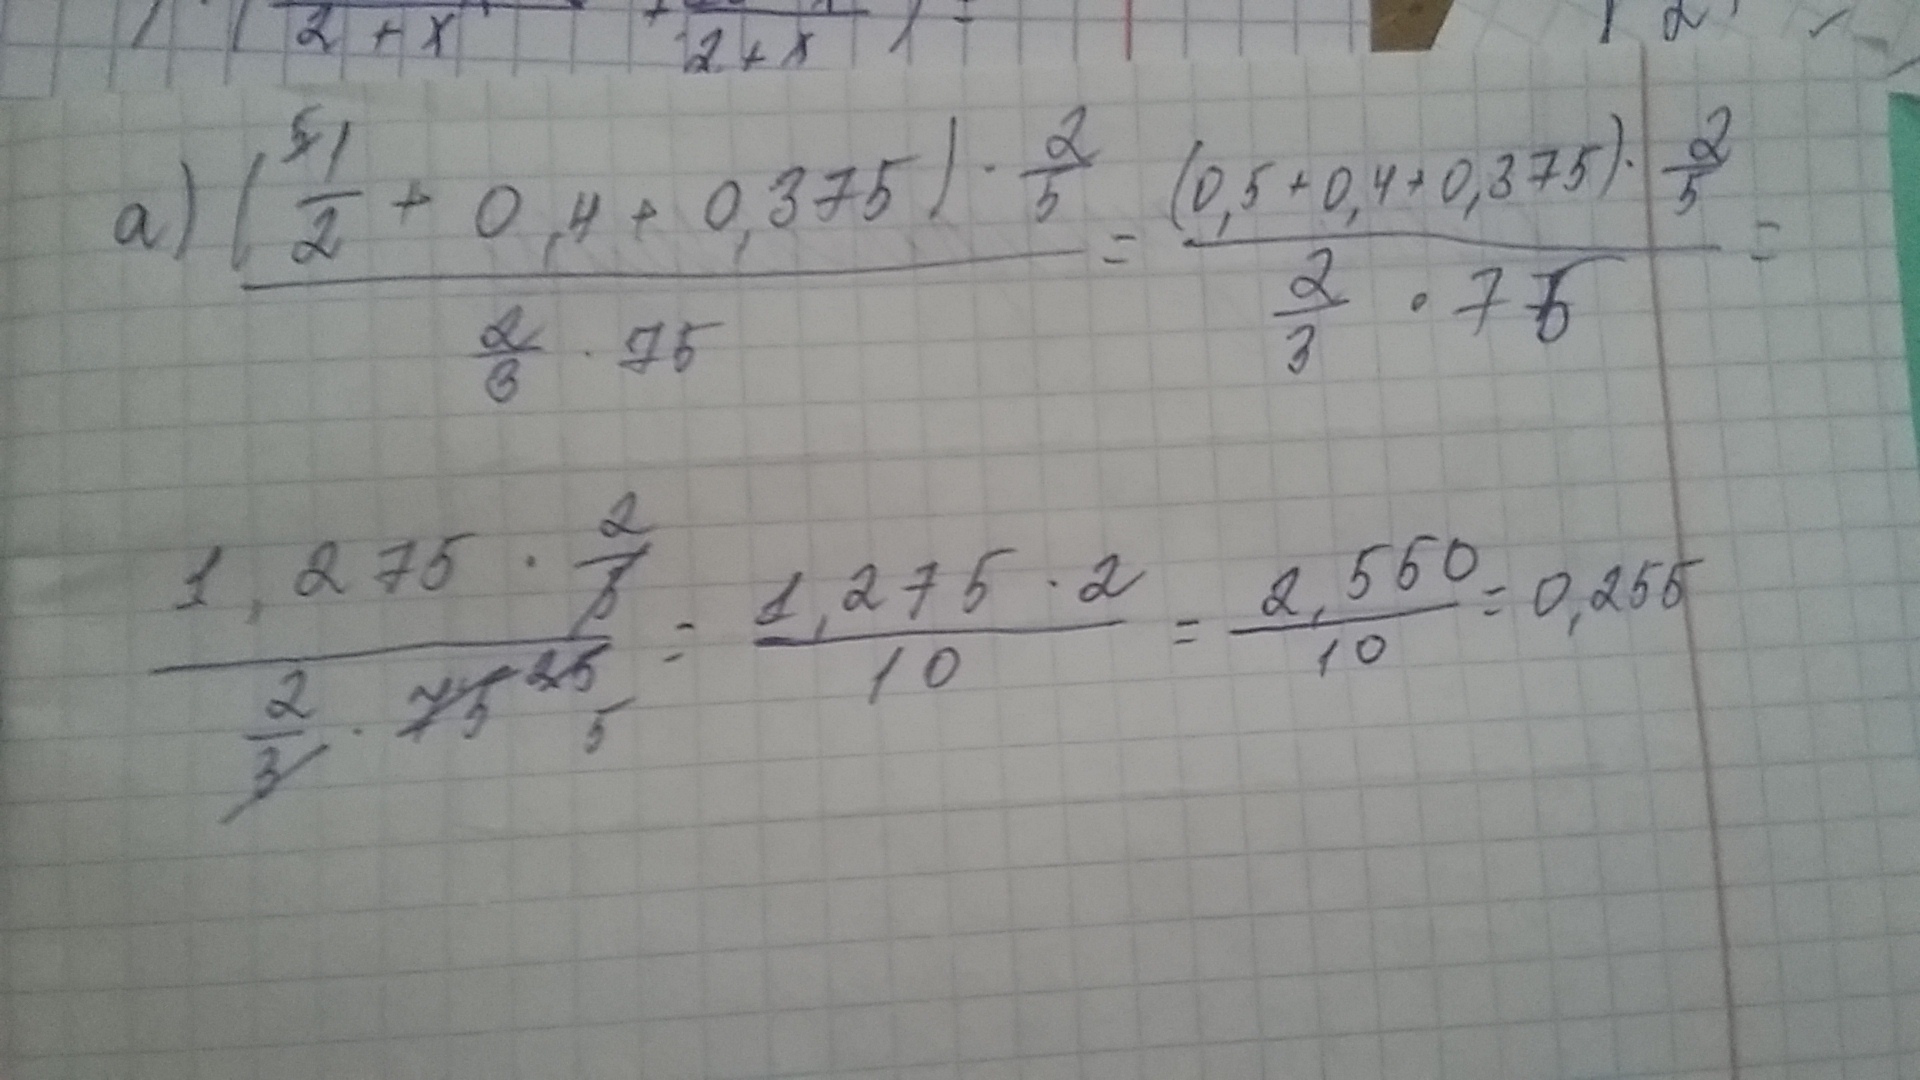 2 + x + 2 + x ) =
a) (1/2 + 0,4 + 0,375) · 2/5 / 2/3 · 75 = (0,5 + 0,4 + 0,375) · 2/5 / 2/3 · 75 =
1,275 · 2/5 / 2/3 · 75 25 5 = 1,275 · 2 / 10 = 2,550 / 10 = 0,255